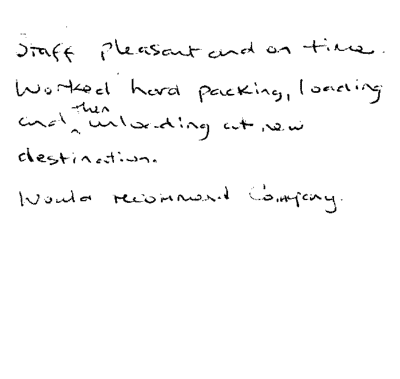 Staff Pleasant and on time.
Worked hard packing, loading
and then unloading at new
destination.
Would recommend Company.